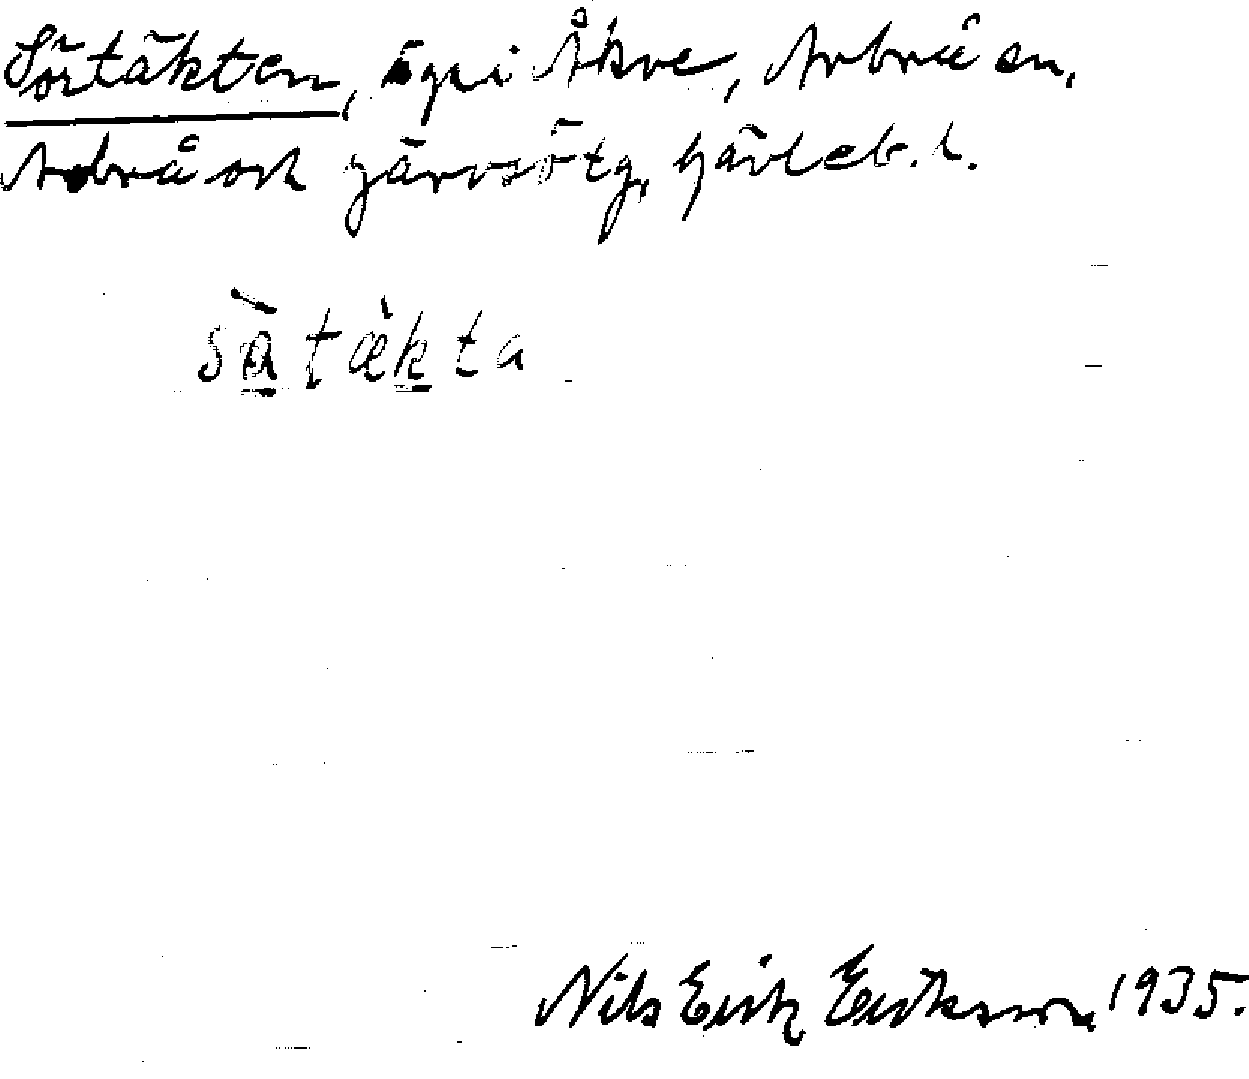 Sörtäkten, äga i Åkre, Arbrå sn,
Arbrå och Järvsö tg, Gävleb. l.
sàtækta
Nils Erik Eriksson 1935.